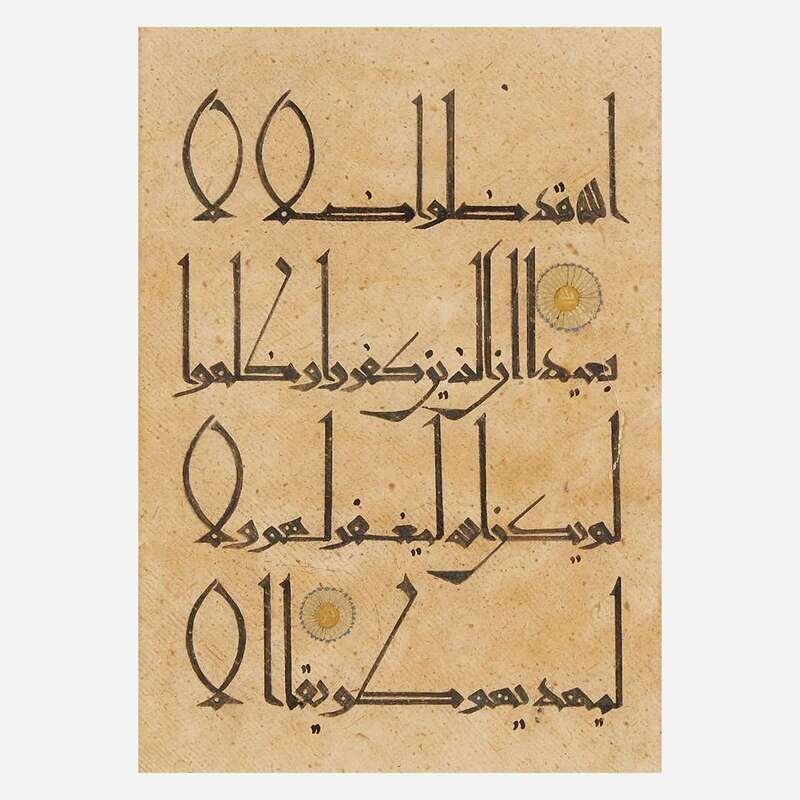 الله قد ضلوا ضلالا
بعيدا ان الذين كفروا وظلموا
لم يكن الله ليغفر لهم ولا
ليهديهم طريقا الا